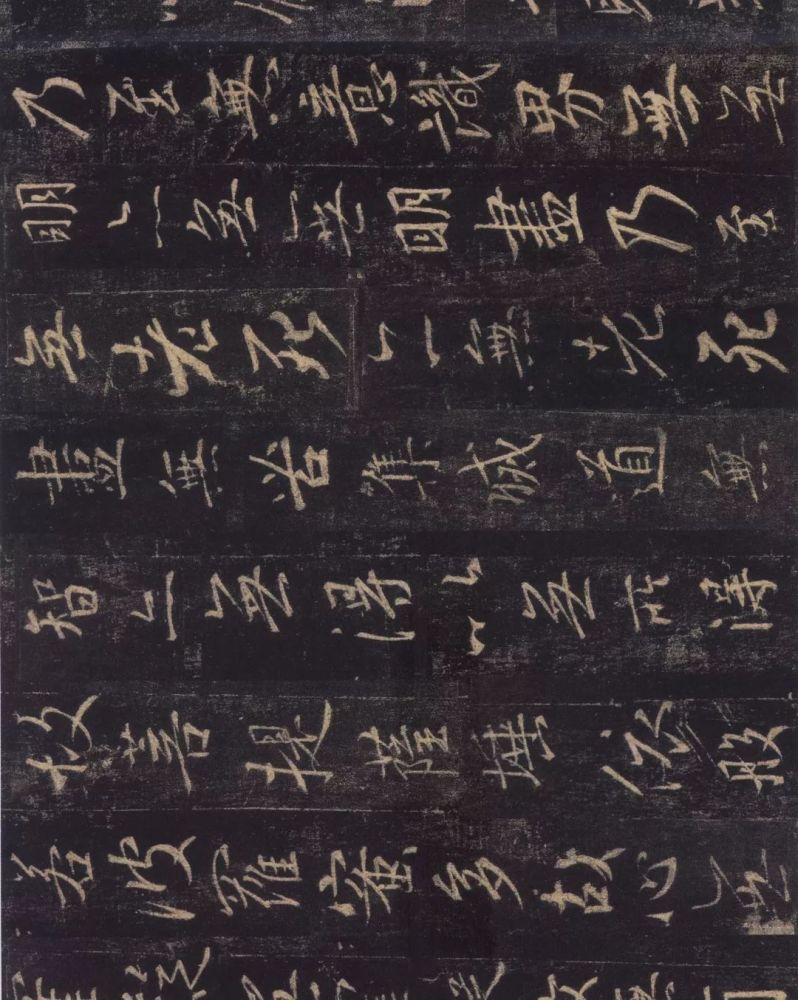 乃至無意識界無無
明亦無無明盡乃至
無老死亦無老死
盡無苦集滅道無
智亦無得以無所得
故菩提薩埵依般
若波羅蜜多故心無